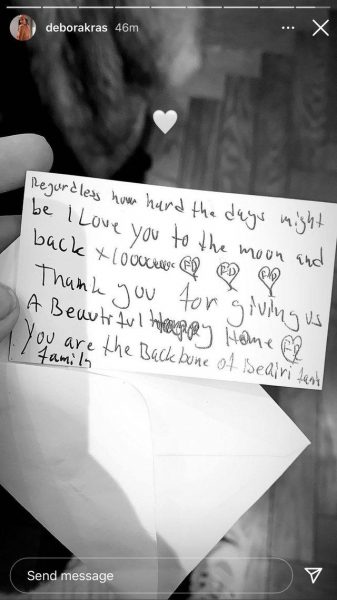 deborakras 46m
Regardless how hard the days might
be I Love you to the moon and
back x10000000 FD FD FD
Thank you for giving us
A Beautiful Happy Home FD
You are the Backbone of
family
Send message